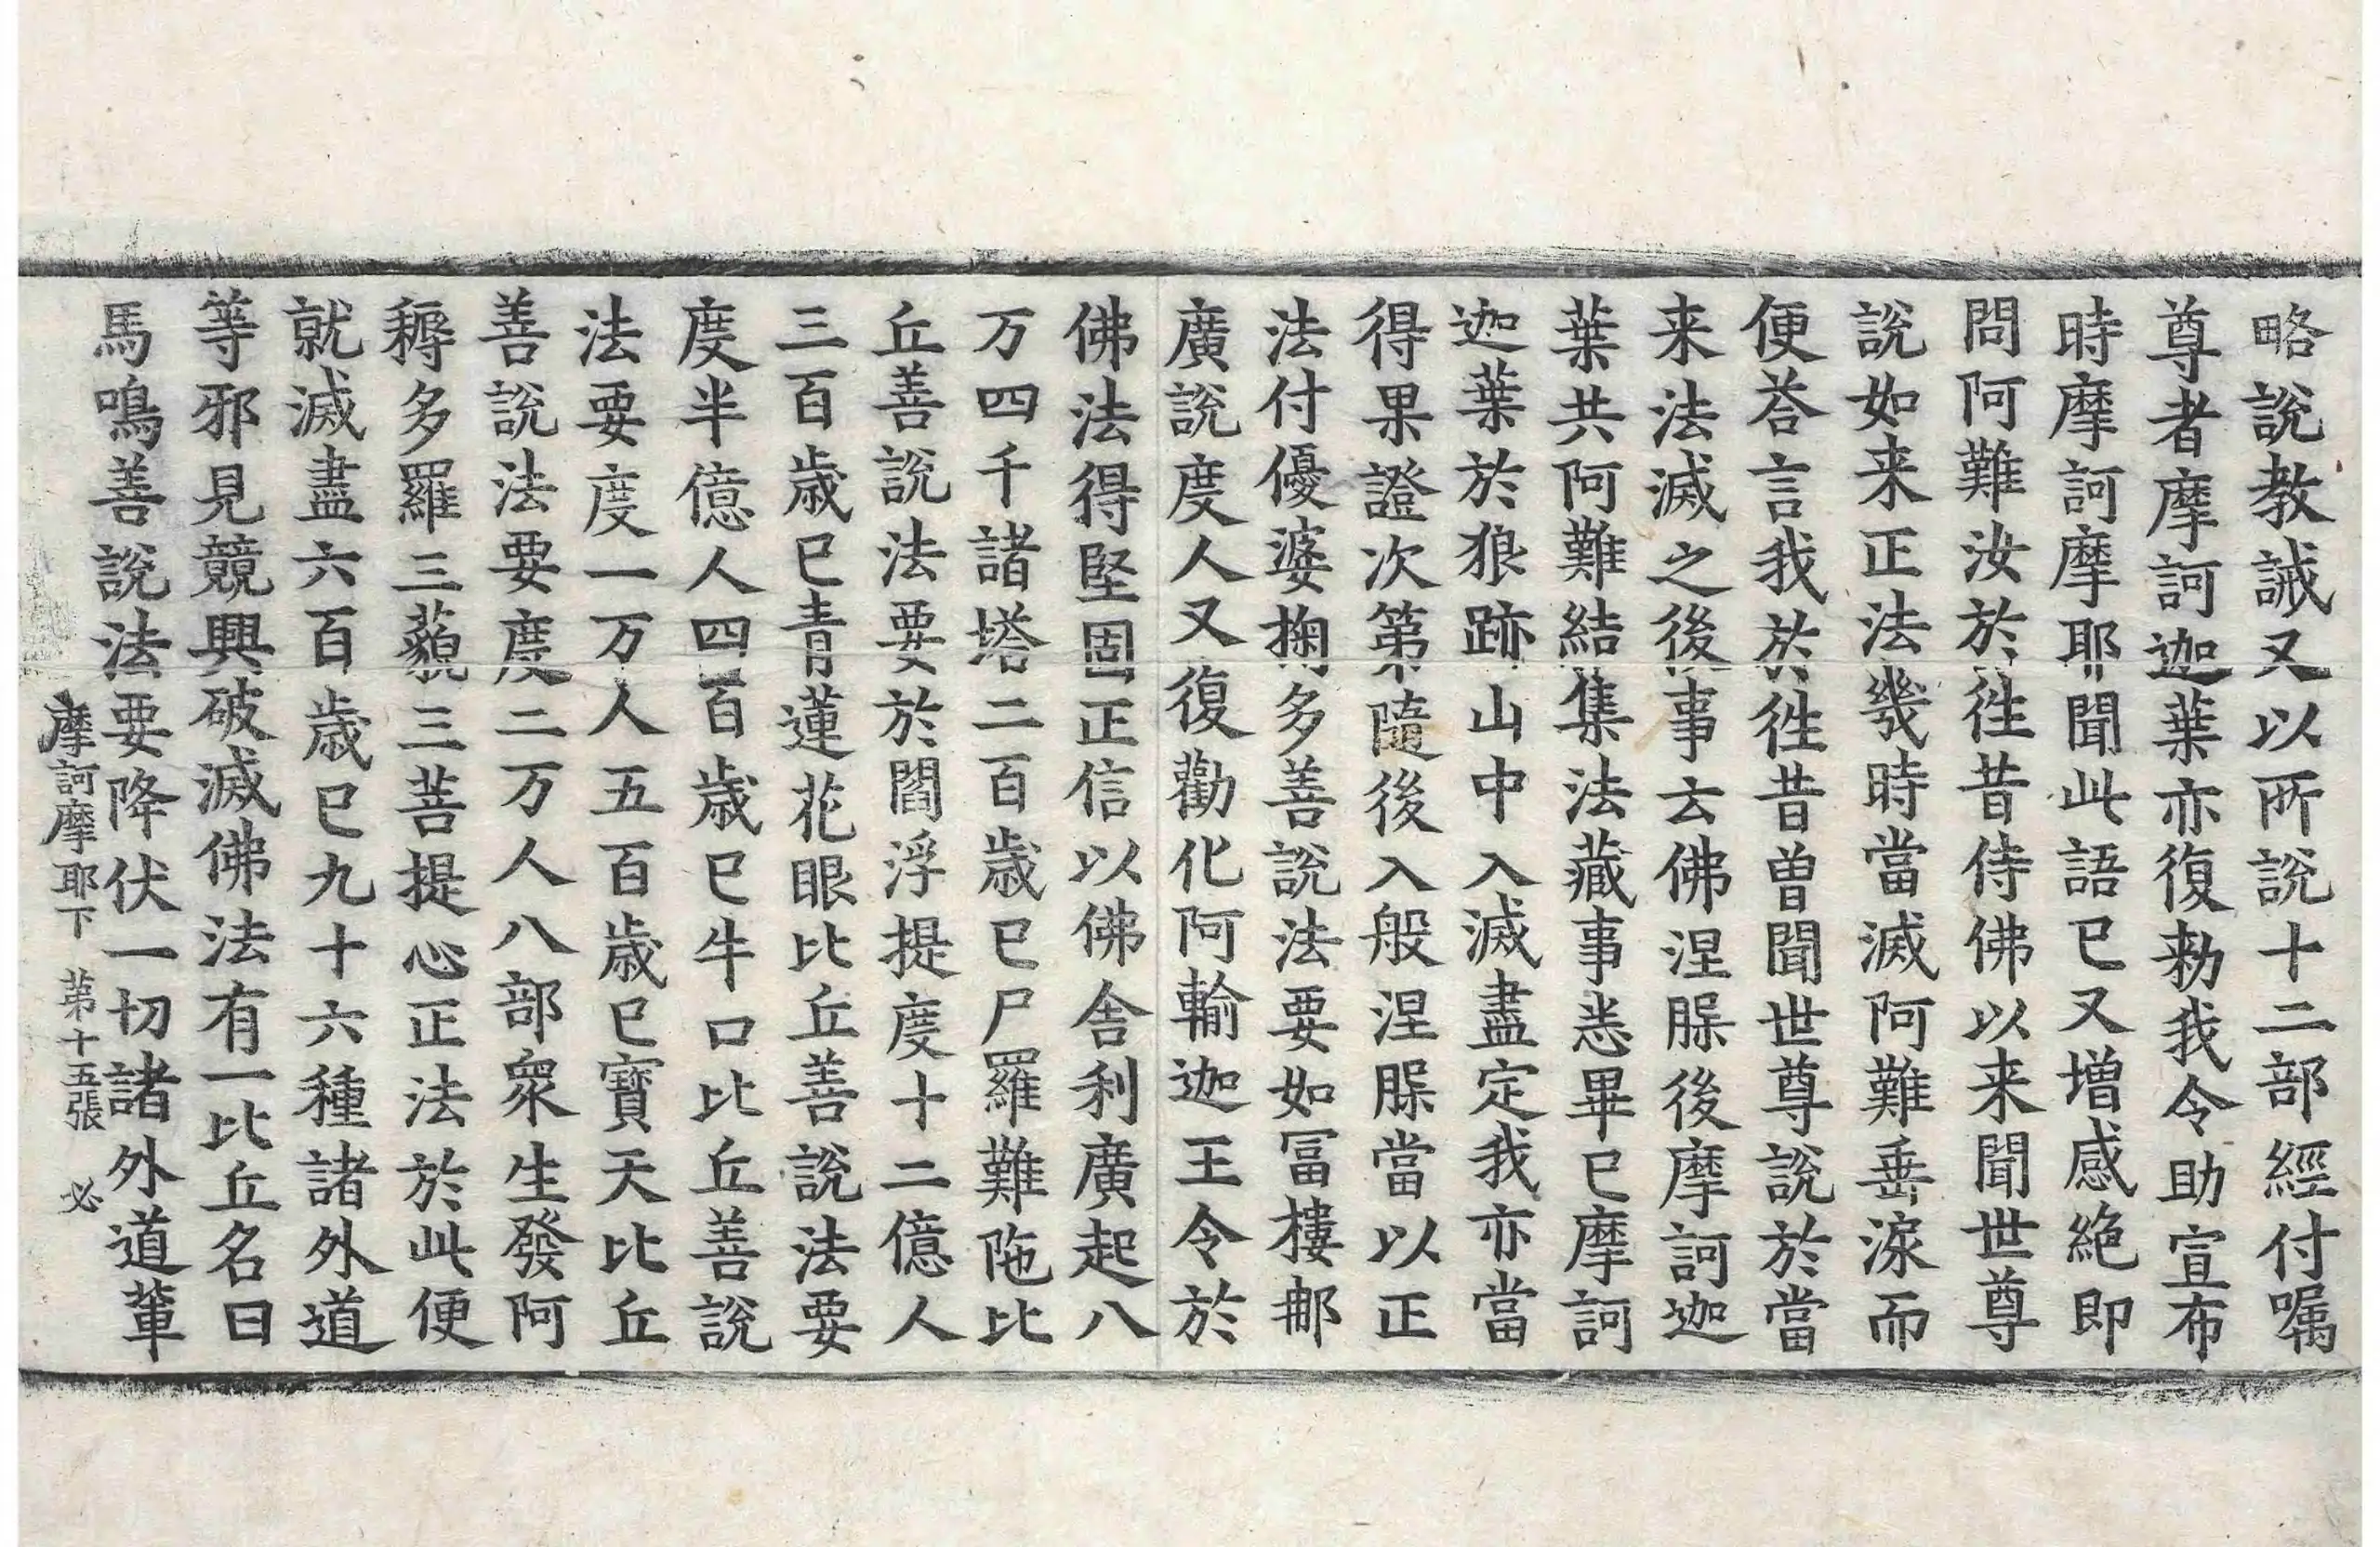 略說教誡又以所說十二部經付嘱
尊者摩訶迦葉亦復勑我令助宣布
時摩訶摩耶聞此語已又增感絶即
問阿難汝於徃昔侍佛以来聞世尊
說如来正法幾時當滅阿難垂淚而
便荅言我於徃昔曽聞世尊說於當
来法滅之後事云佛涅槃後摩訶迦
葉共阿難結集法藏事悉畢已摩訶
迦葉於狼跡山中入滅盡定我亦當
得果證次第隨後入般涅槃當以正
法付優婆掬多善說法要如冨樓那
廣說度人又復勸化阿輸迦王令於
佛法得堅固正信以佛舎利廣起八
万四千諸塔二百歲已尸羅難陁比
丘善說法要於閻浮提度十二億人
三百歲已青蓮花眼比丘善說法要
度半億人四百歲已牛口比丘善說
法要度一万人五百歲已寶天比丘
善說法要度二万人八部衆生發阿
耨多羅三藐三菩提心正法於此便
就滅盡六百歲已九十六種諸外道
等邪見競興破滅佛法有一比丘名曰
馬鳴善說法要降伏一切諸外道輩
摩訶摩耶下　第十五張　必